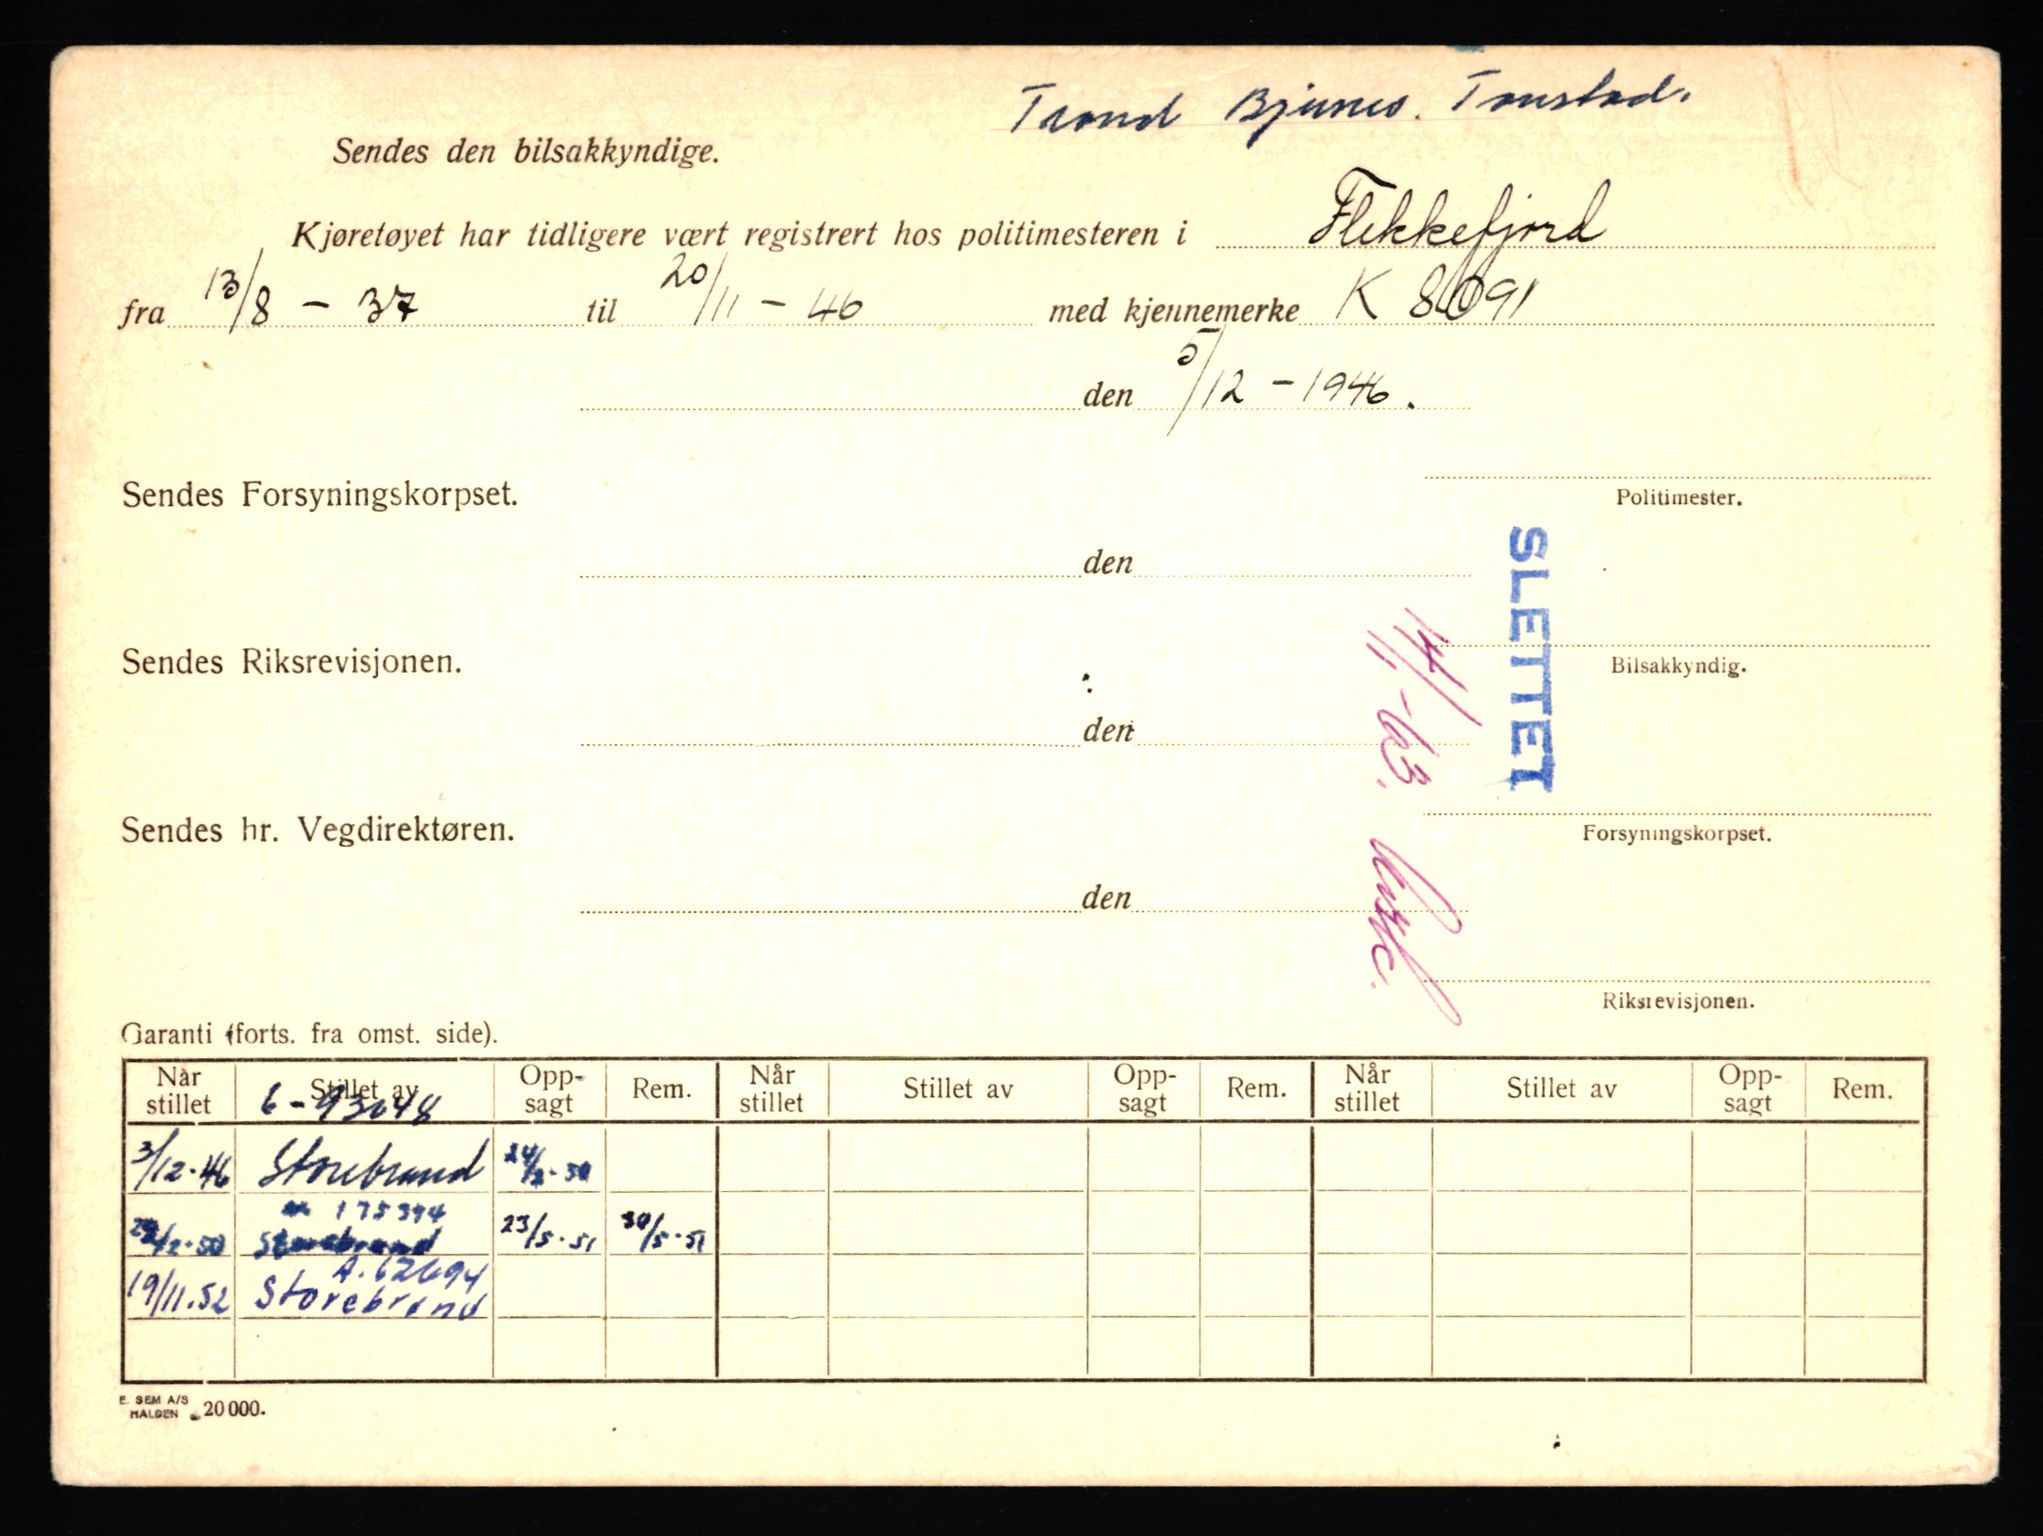 Trond Bjunes. Tonstad.
Sendes den bilsakkyndige.
Kjøretøyet har tidligere vært registrert hos politimesteren i Flekkefjord
fra 13/8 - 37 til 20/11 - 46 med kjennemerke K 8091
den 5/12 - 1946.
Sendes Forsyningskorpset.
Politimester.
den
SLETTET
14/1 - 63.
Sendes Riksrevisjonen.
Bilsakkyndig.
den
Sendes hr. Vegdirektøren.
Forsyningskorpset.
den
Riksrevisjonen.
Garanti (forts. fra omst. side).
Når stillet Stillet av Opp-sagt Rem. Når stillet Stillet av Opp-sagt Rem. Når stillet Stillet av Opp-sagt Rem.
6-93048
3/12.46 Storebrand 24/2-50
175394
24/2-50 Storebrand 23/5.51 30/5.51
A.62694
19/11.52 Storebrand
E. SEM A/S
HALDEN 20 000.